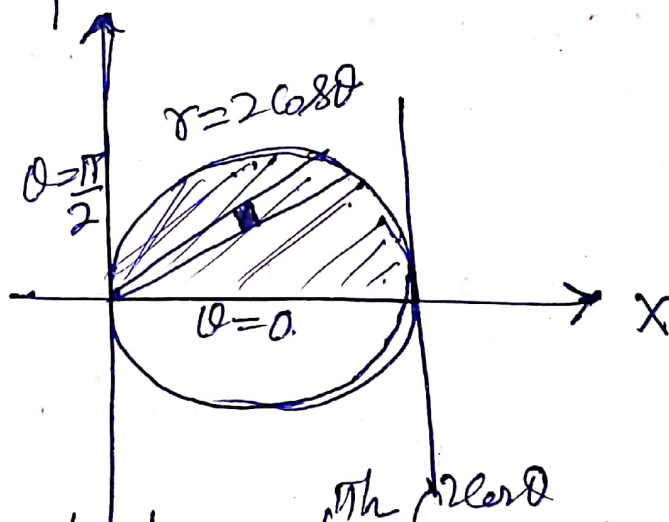 r=2Cosθ
θ=π/2
θ=0.
X
π/2 2Cosθ